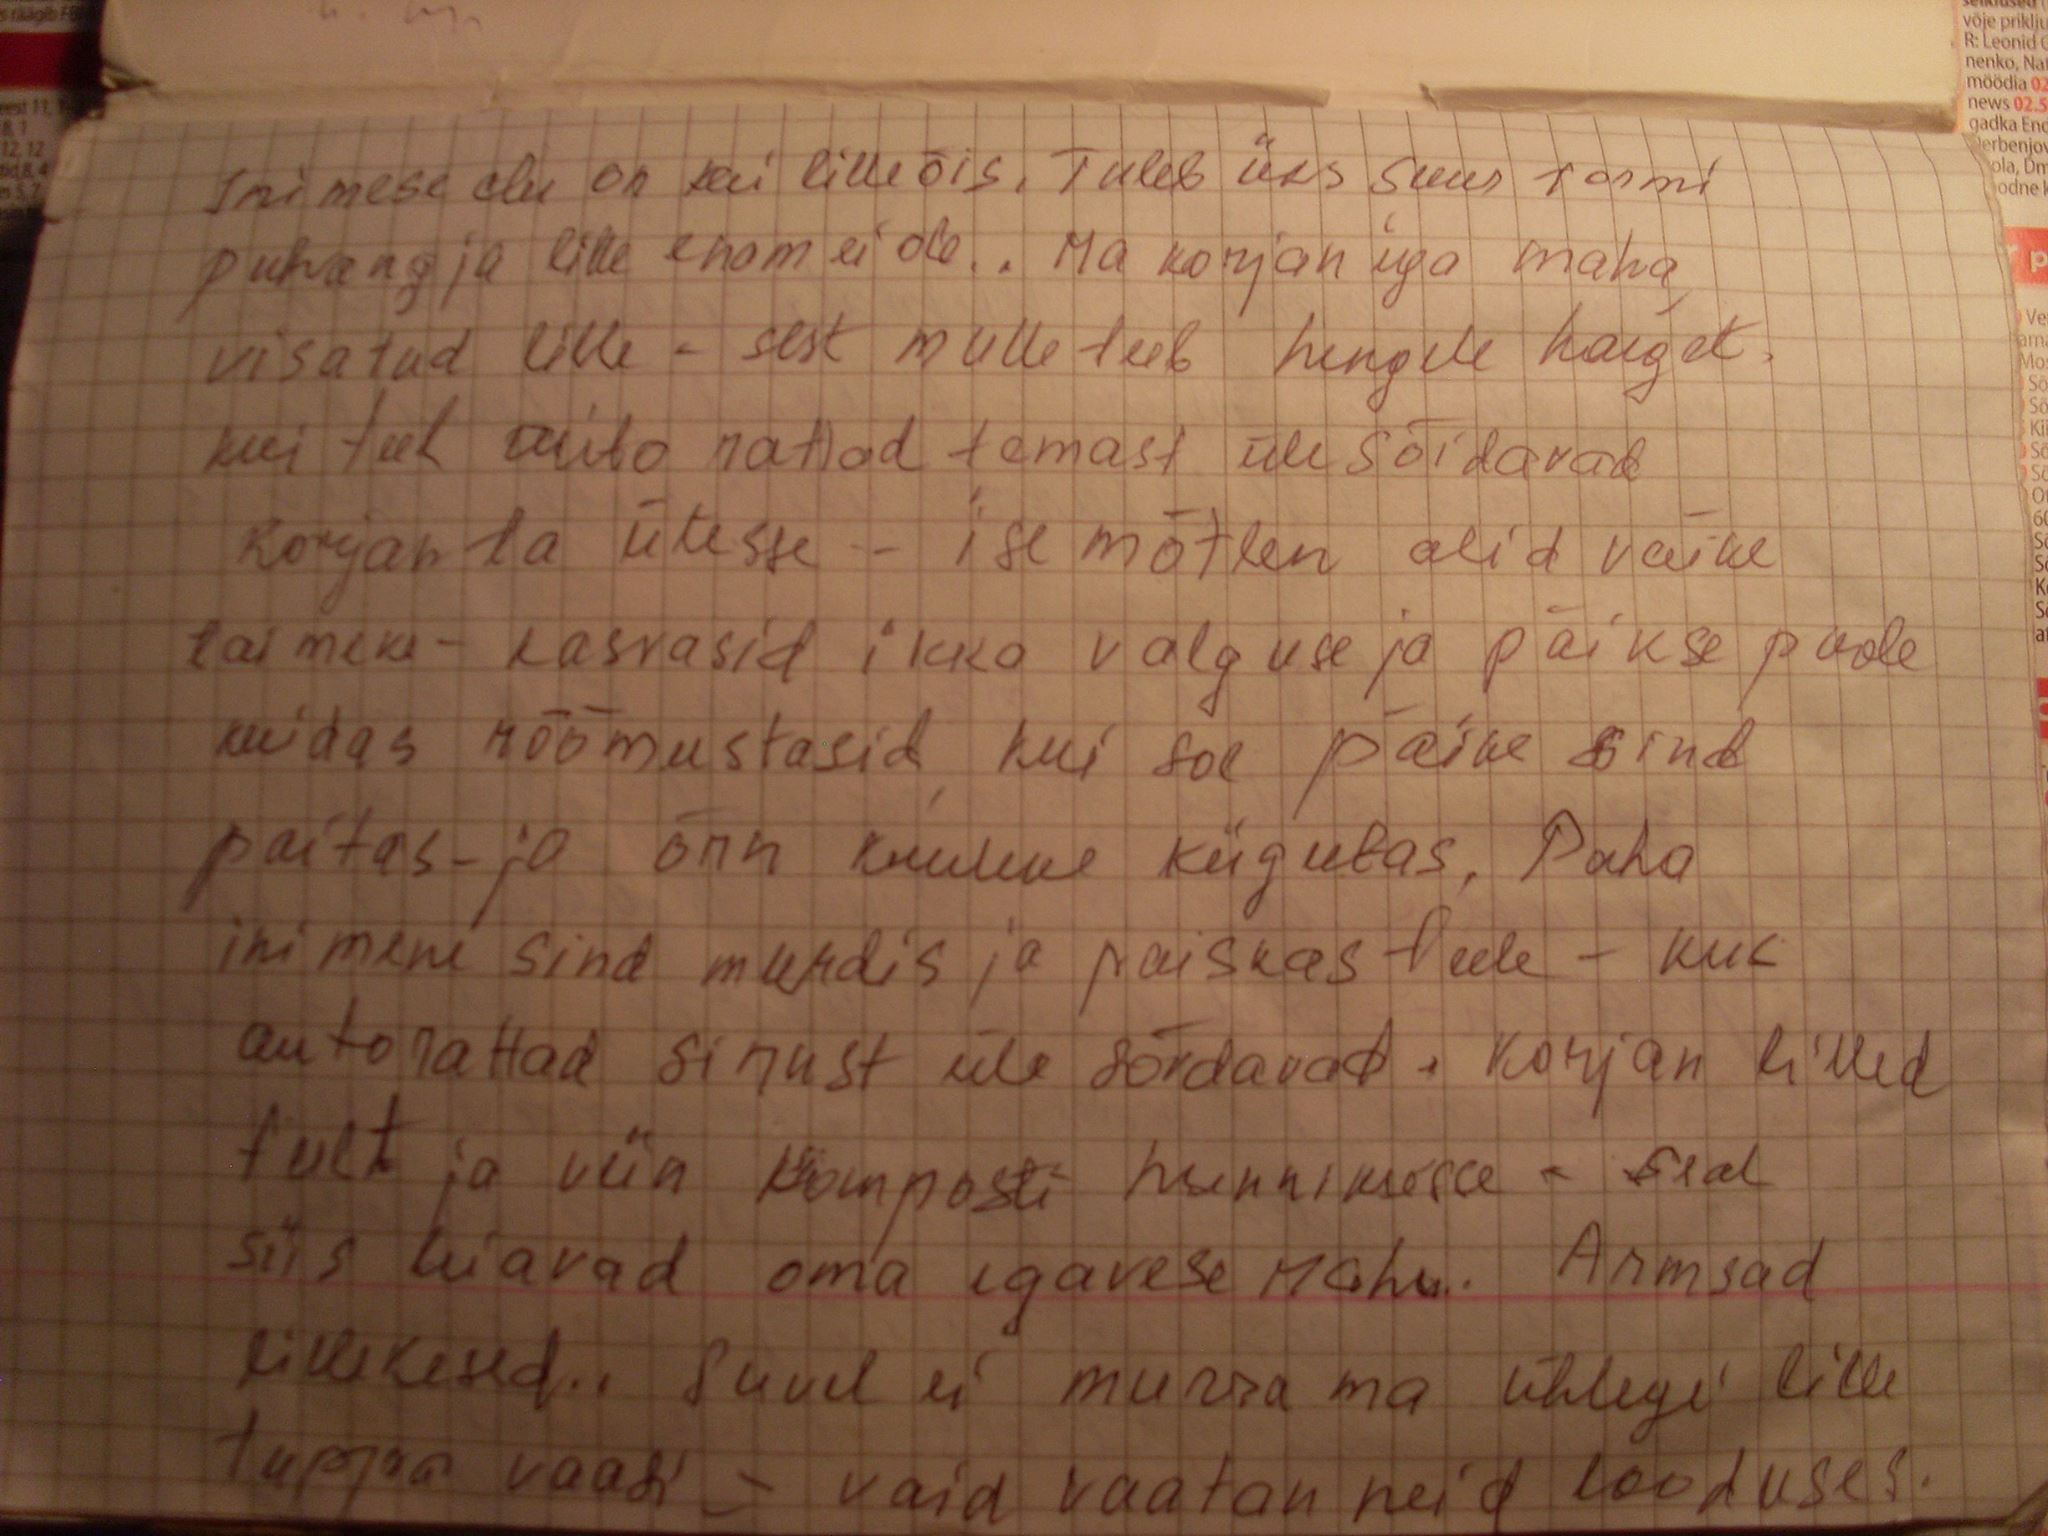 Inimese elu on kui lilleõis. Tuleb üks suur tormi
puhang ja lille enam ei ole.. Ma korjan iga maha
visatud lille - sest mulle teeb hingele haiget.
kui teel auto rattad temast üle sõidavad
korjan ta ülesse - ise mõtlen olid väike
taimeke - kasvasid ikka valguse ja päikse poole
kuidas rõõmustasid, kui soe päike sind
paitas - ja õrn tuuleke kiigutas. Paha
inimene sind murdis ja paiskas teele - kus
autorattad sinust üle sõidavad. Korjan lilled
teelt ja viin komposti hunnikusse - seal
siis leiavad oma igavese rahu.. Armsad
lillekesed.. Suvel ei murra ma ühtegi lille
tuppa vaasi - vaid vaatan neid looduses.
s räägib FB
eest 11, 1
8, 1
12, 12
võje priklju
R: Leonid G
nenko, Nat
möödia 02
news 02.5
gadka End
derbenjov
ola, Dm
odne k